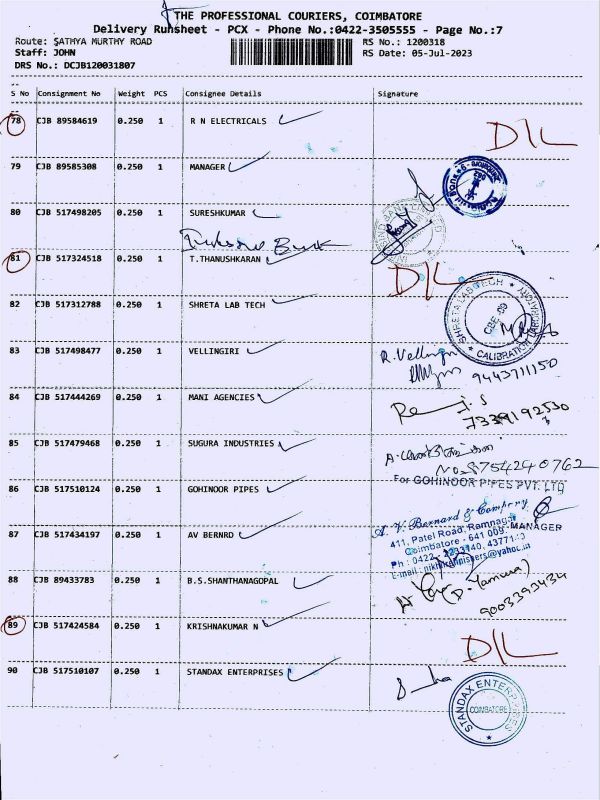 THE PROFESSIONAL COURIERS, COIMBATORE
Delivery Runsheet - PCX - Phone No.:0422-3505555 - Page No.:7
Route: SATHYA MURTHY ROAD RS No.: 1200318
Staff: JOHN RS Date: 05-Jul-2023
DRS No.: DCJB120031807
S No Consignment No Weight PCS Consignee Details Signature
78 CJB 89584619 0.250 1 R N ELECTRICALS D/L
79 CJB 89585308 0.250 1 MANAGER
80 CJB 517498205 0.250 1 SURESHKUMAR
81 CJB 517324518 0.250 1 T.THANUSHKARAN D/L
82 CJB 517312788 0.250 1 SHRETA LAB TECH
SHRETA LAB TECH
CBE-09
CALIBRATION LABORATORY
83 CJB 517498477 0.250 1 VELLINGIRI R.Vellingiri
9443711150
84 CJB 517444269 0.250 1 MANI AGENCIES
7339192530
85 CJB 517479468 0.250 1 SUGURA INDUSTRIES
8754240762
For GOHINOOR PIPES PVT. LTD
86 CJB 517510124 0.250 1 GOHINOOR PIPES
MANAGER
87 CJB 517434197 0.250 1 AV BERNRD
A. V. Bernard & Company
411, Patel Road, Ramnagar
Coimbatore - 641 009
88 CJB 89433783 0.250 1 B.S.SHANTHANAGOPAL
(D. Yamuna)
9003393434
89 CJB 517424584 0.250 1 KRISHNAKUMAR N D/L
90 CJB 517510107 0.250 1 STANDAX ENTERPRISES
STANDAX ENTERPRISES
COIMBATORE